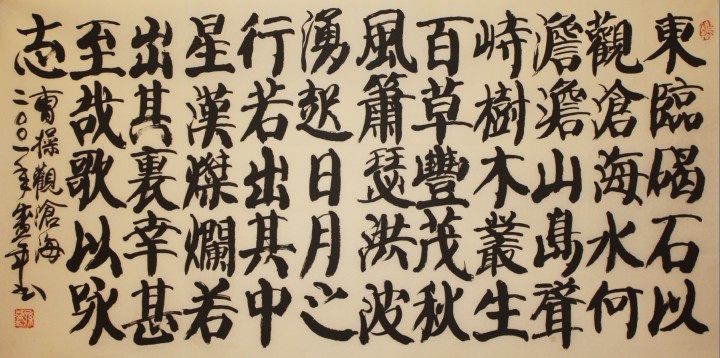 東臨碣石以
觀滄海水何
澹澹山島聳
峙樹木叢生
百草豐茂秋
風簫瑟洪波
湧起日月之
行若出其中
星漢燦爛若
出其裏幸甚
至哉歌以咏
志
曹操觀滄海
二〇〇一年書